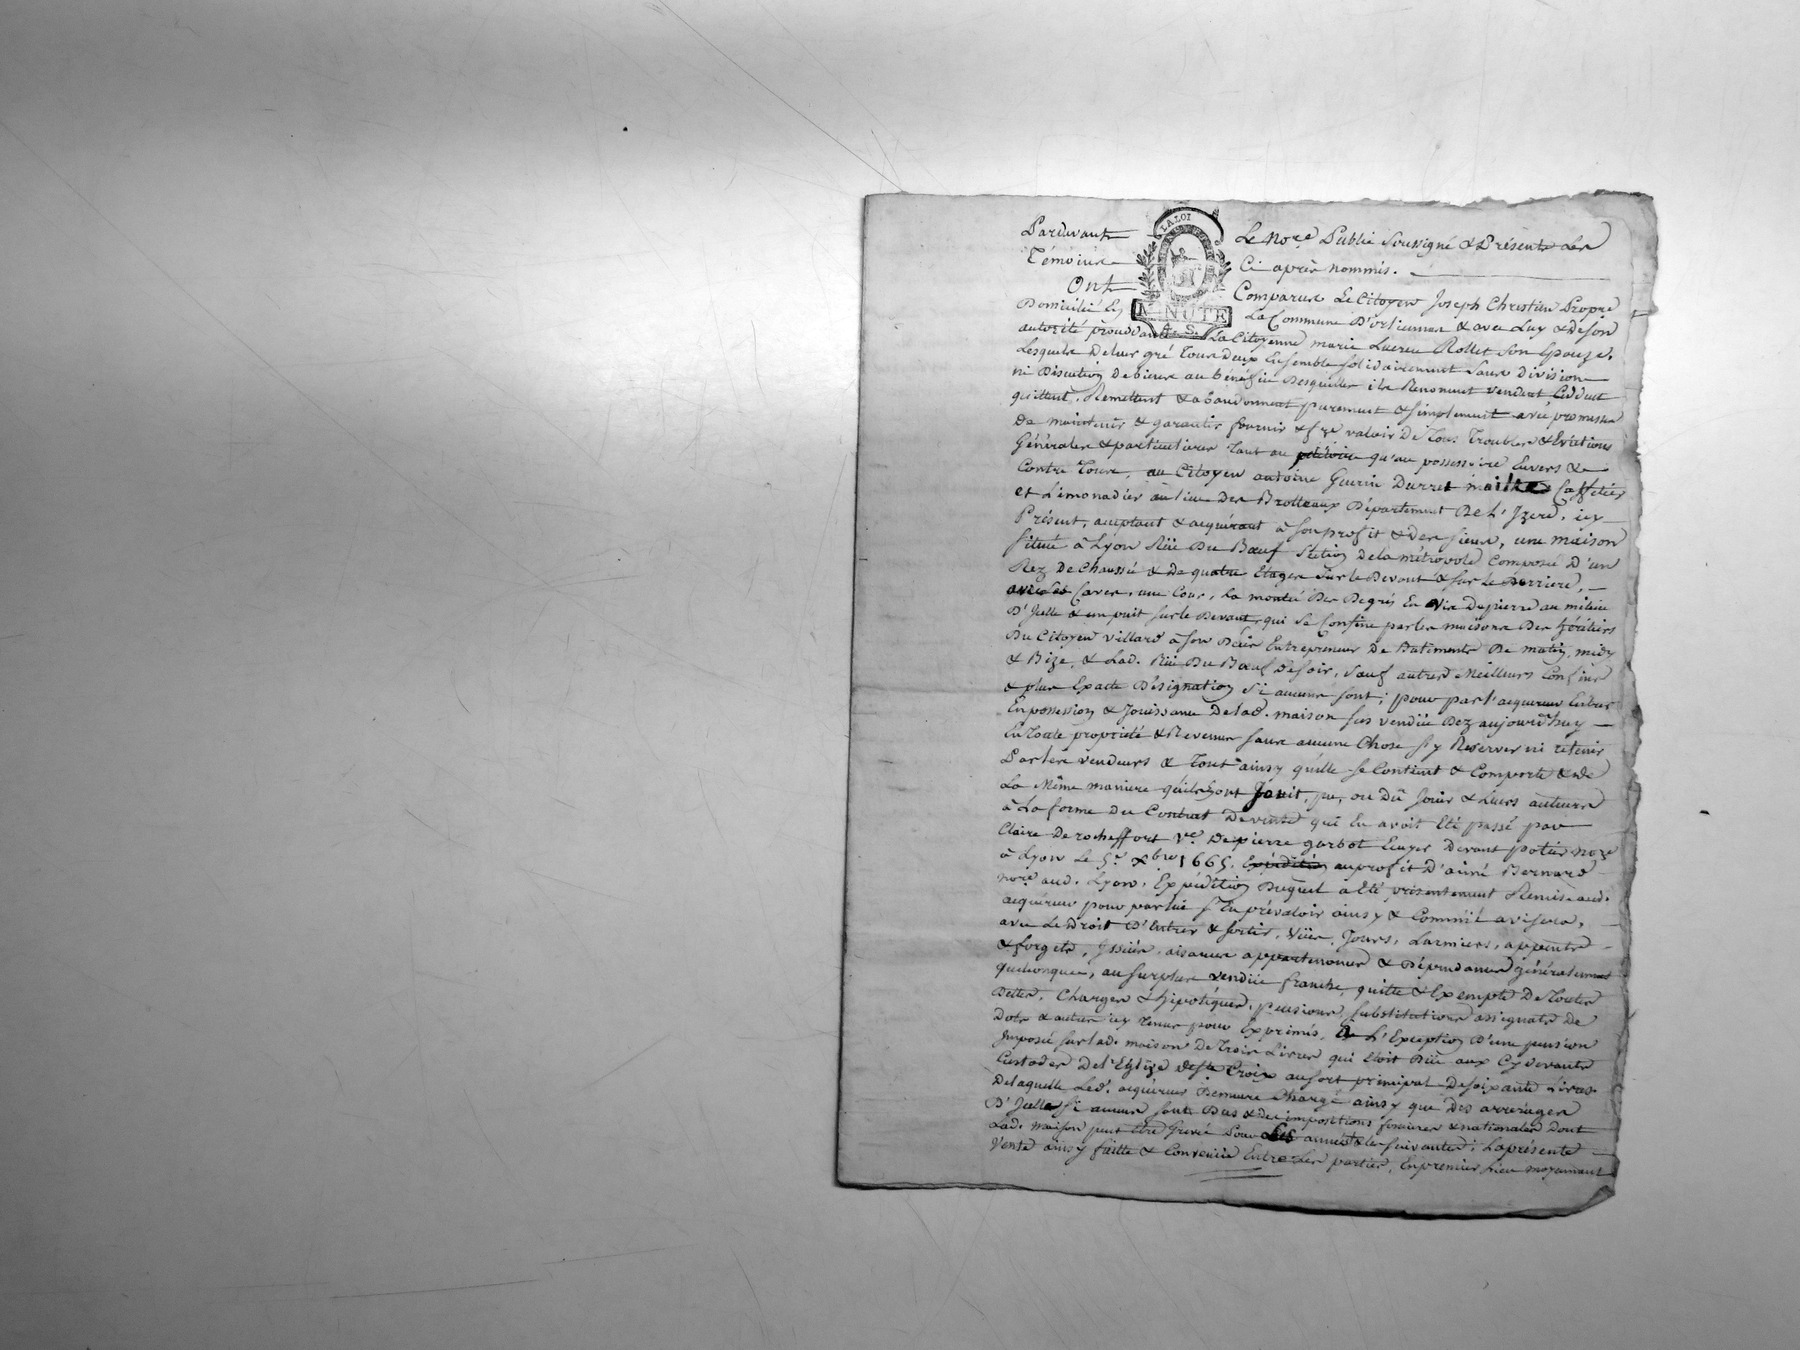 Pardevant Le Nore Public Soussigné & Présents Les
Témoins Ci après nommés.
LA LOI
MINUTE
4. S.
Ont Comparus Le Citoyen Joseph Christian Propre
Domicilié En La Commune D'ortiemas & avec Luy & De Son
autorité procédant La Citoyenne marie Lucrece Rollet Son Epouze,
Lesquels De leur gré Tous Deux Ensemble Solidairement Sans Division
ni Discution De biens au bénéfice Desquelles ils Renoncent vendent Cèddent
quittent, Remettent & abandonnent purement & simplement avec promesse
De maintenir & garantir fournir & fre valoir De Tous Troubles & Evictions
Générales & particulieres Tant au petitoire qu'au possessoire Envers &
Contre Tous, au Citoyen antoine Guerin Durret maitre Caffetier
et Limonadier au lieu Des Brotteaux Département De L'Izere, icy
Présent, acceptant & acquérant à Son profit & des siens, une maison
située à Lyon Rüe Du Bœuf Section De la métropole Composée D'un
Rez De Chaussée & De quatre Etages Sur Le Devant & Sur Le Derriere,
avec Les Caves, une Cour, La montée Des Degrés En Vis De pierre au milieu
D'Icelle & un puit Sur le Devant, qui Se Confine par les maisons Des héritiers
Du Citoyen Villard à Son Décès Entrepreneur De Batiments De matin, midy
& Bize, & Lad. Rüe Du Bœuf De Soir, Sauf autres Meilleurs Confins
& plus Exacte Désignation Si aucune Sont; pour par l'acquereur Entrer
En possession & Jouissance De lad. maison Sus vendüe Dez aujourd'huy
En Toute propriété & Revenus Sans aucune Chose S'y Reserver ni retenir
Par les vendeurs & Tout ainsy qu'elle Se Contient & Comporte & De
La Même maniere qu'ils Ont Joui, pu, ou Dû Jouir & Leurs auteurs
à La forme Du Contrat De vente qui En avoit Eté passé par
Claire De rocheffort Ve. De pierre garbot Ecuyer Devant potier nore
à Lyon Le 5e. Xbre 1665. Expédition au profit D'aimé Bernard
nore aud. Lyon, Expédition Duquel a Eté présentement Remis aud.
acquéreur pour par lui S'En prévaloir ainsy & Comme il avisera,
avec Le Droit D'Entrer & Sortir, Vües, Jours, Larmiers, appents
& forgets, Issües, aisances appartenances & Dépendances généralement
quelconques, au Surplus vendüe franche, quitte & Exempte De Toutes
Dettes, Charges & hipotéques, pensions, Substitutions assignats De
Dots & autres icy Tenus pour Exprimés, à L'Exception D'une pension
Imposée Sur lad. maison De Trois Livres qui Etoit Düe aux Cydevants
Custodes De L'Eglize de Ste Croix au Sort principal De Soixante Livres
De laquelle Led. acquéreur Demeure Chargé ainsy que Des arrérages
D'Icelle Si aucuns Sont Dus & des impositions foncieres & nationales Dont
Lad. maison peut Etre Grevée Pour Les années Suivantes; La présente
Vente ainsy faitte & Convenüe Entre Les parties, En premier Lieu moyennant